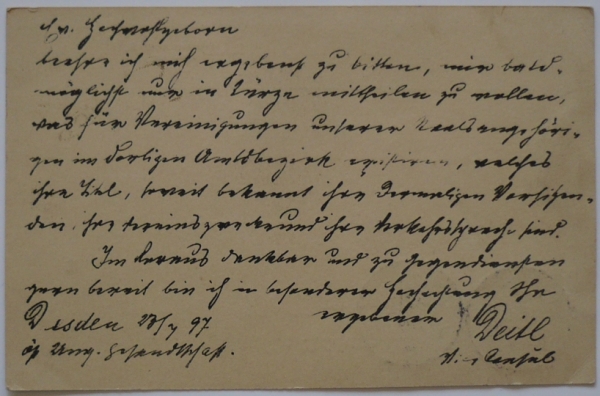 Ew. Hochwohlgeboren
beehre ich mich ergebenst zu bitten, mir bald-
möglichst nur in Kürze mittheilen zu wollen,
was für Vereinigungen unserer Staatsangehöri-
gen im dortigen Amtsbezirk existiren, welches
ihre Titel, soweit bekannt ihre dermaligen Vorsitzen-
den, ihre Vereinszwecke und ihre Verkehrssprache sind.
Im Voraus dankbar und zu Gegendiensten
gern bereit bin ich in besonderer Hochachtung Ihr
ergebener
Dresden 97
öst Ung. Gesandtschaft.